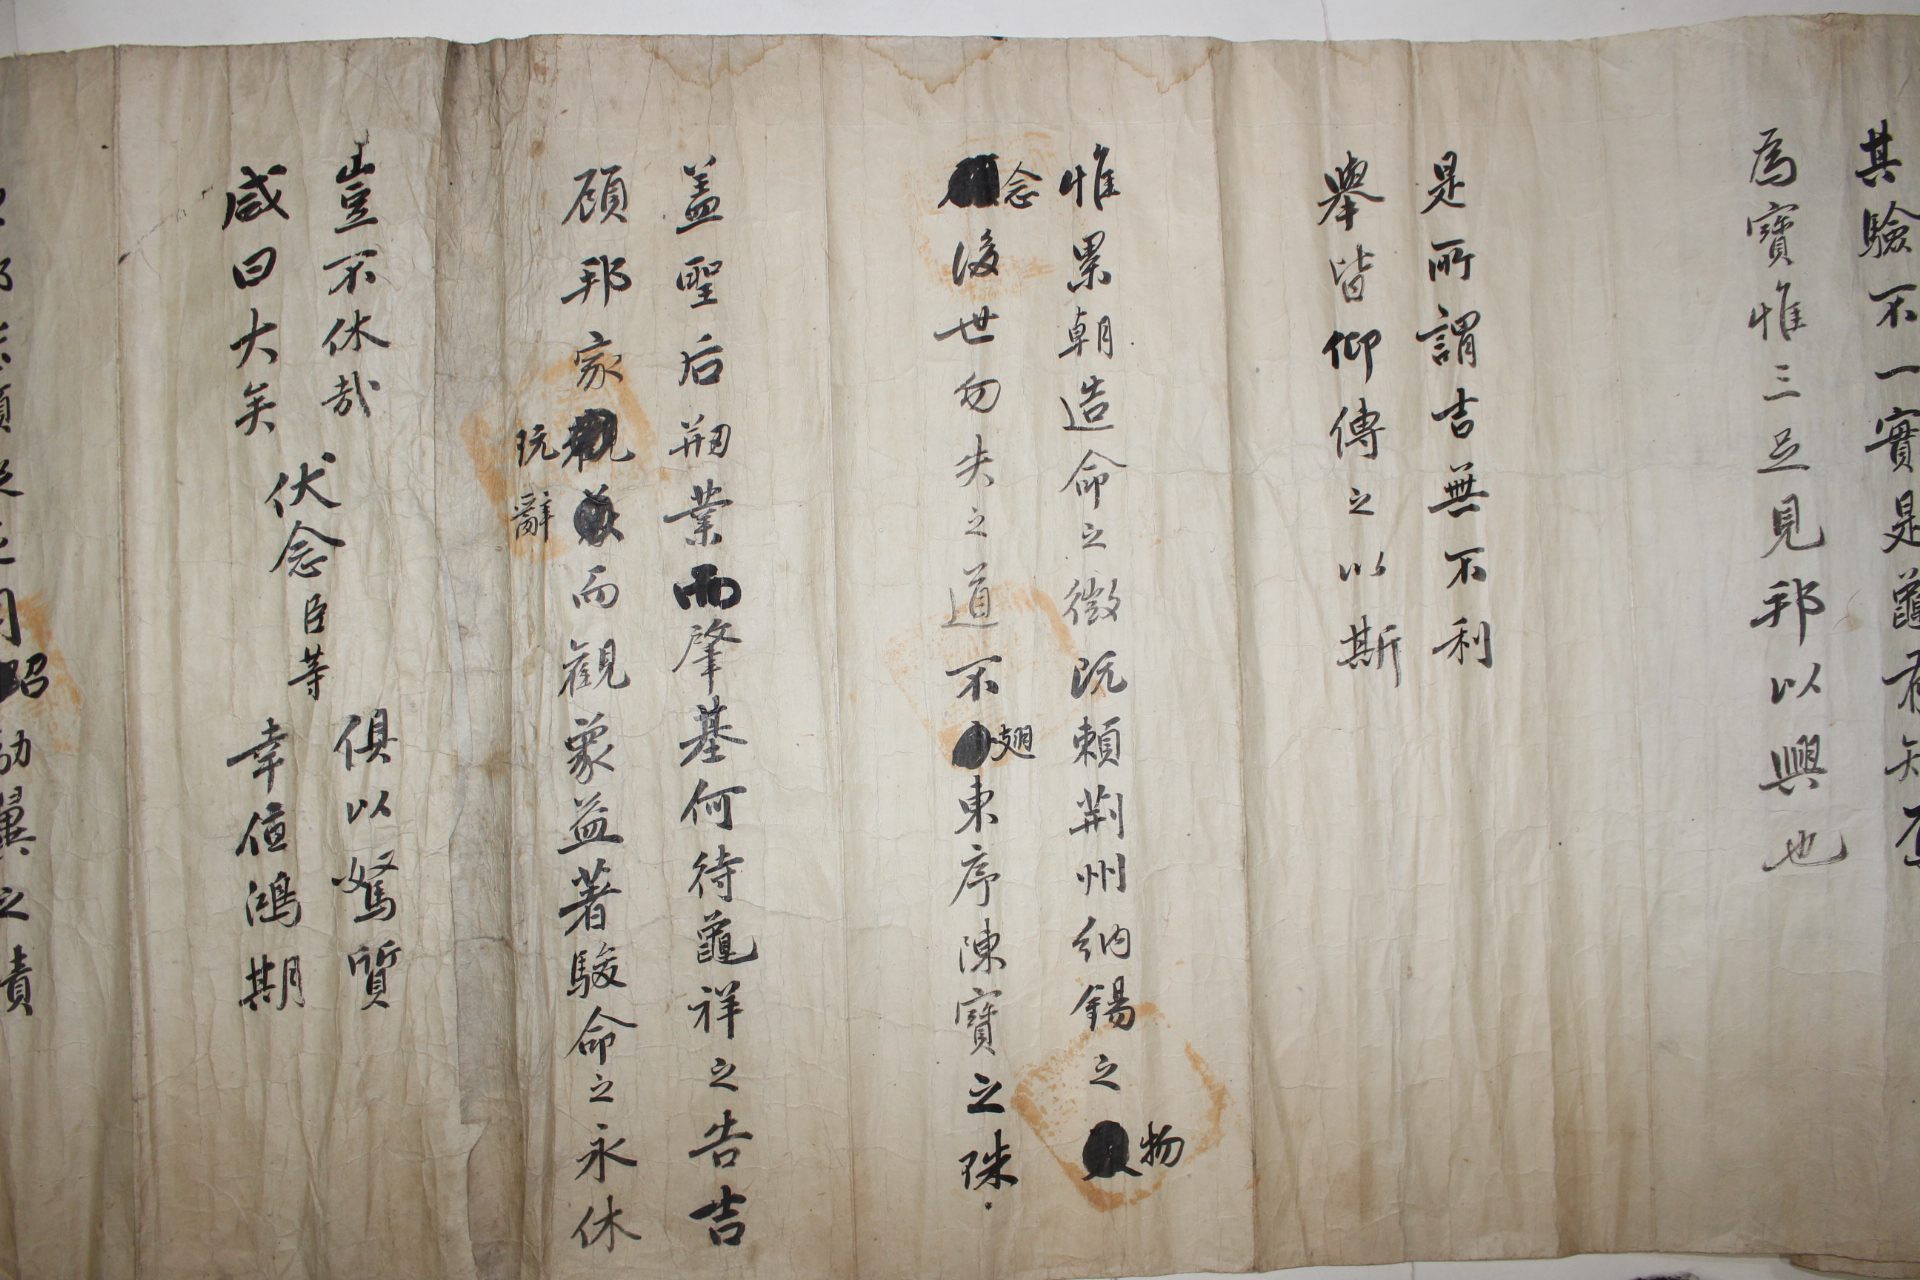 其驗不一實是龜有知
為寶惟三足見邦以興也
是所謂吉無不利
舉皆仰傳之以斯
惟累朝造命之徵既賴荊州納錫之物
念後世勿失之道不翅東序陳寶之珠
盖聖后刱業而肇基何待龜祥之告吉
顧邦家玩辭而觀象益著駿命之永休
豈不休哉
咸曰大矣
伏念臣等
俱以駑質
幸値鴻期
昭劾翼之責